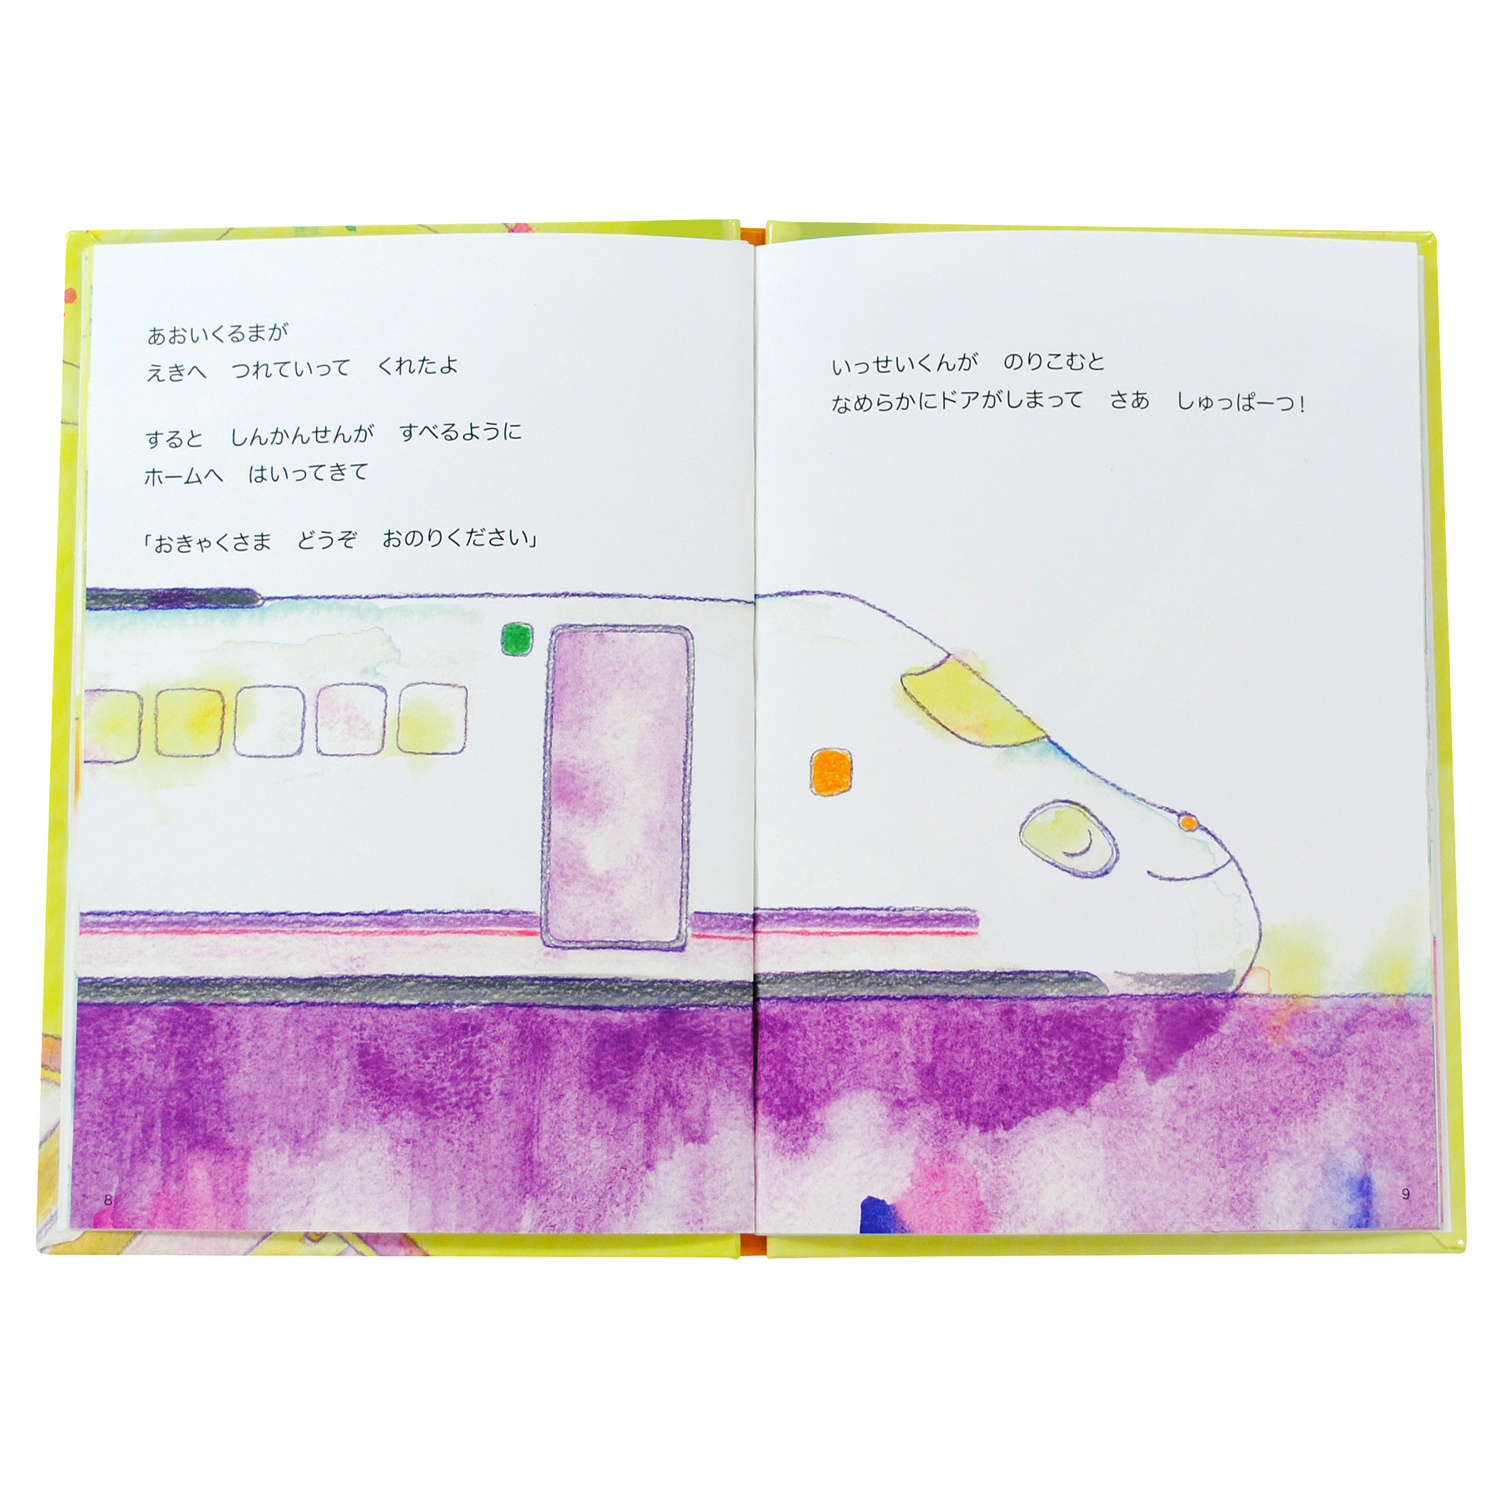 あおいくるまが
えきへ　つれていって　くれたよ
すると　しんかんせんが　すべるように
ホームへ　はいってきて
「おきゃくさま　どうぞ　おのりください」
8
いっせいくんが　のりこむと
なめらかにドアがしまって　さあ　しゅっぱーつ！
9